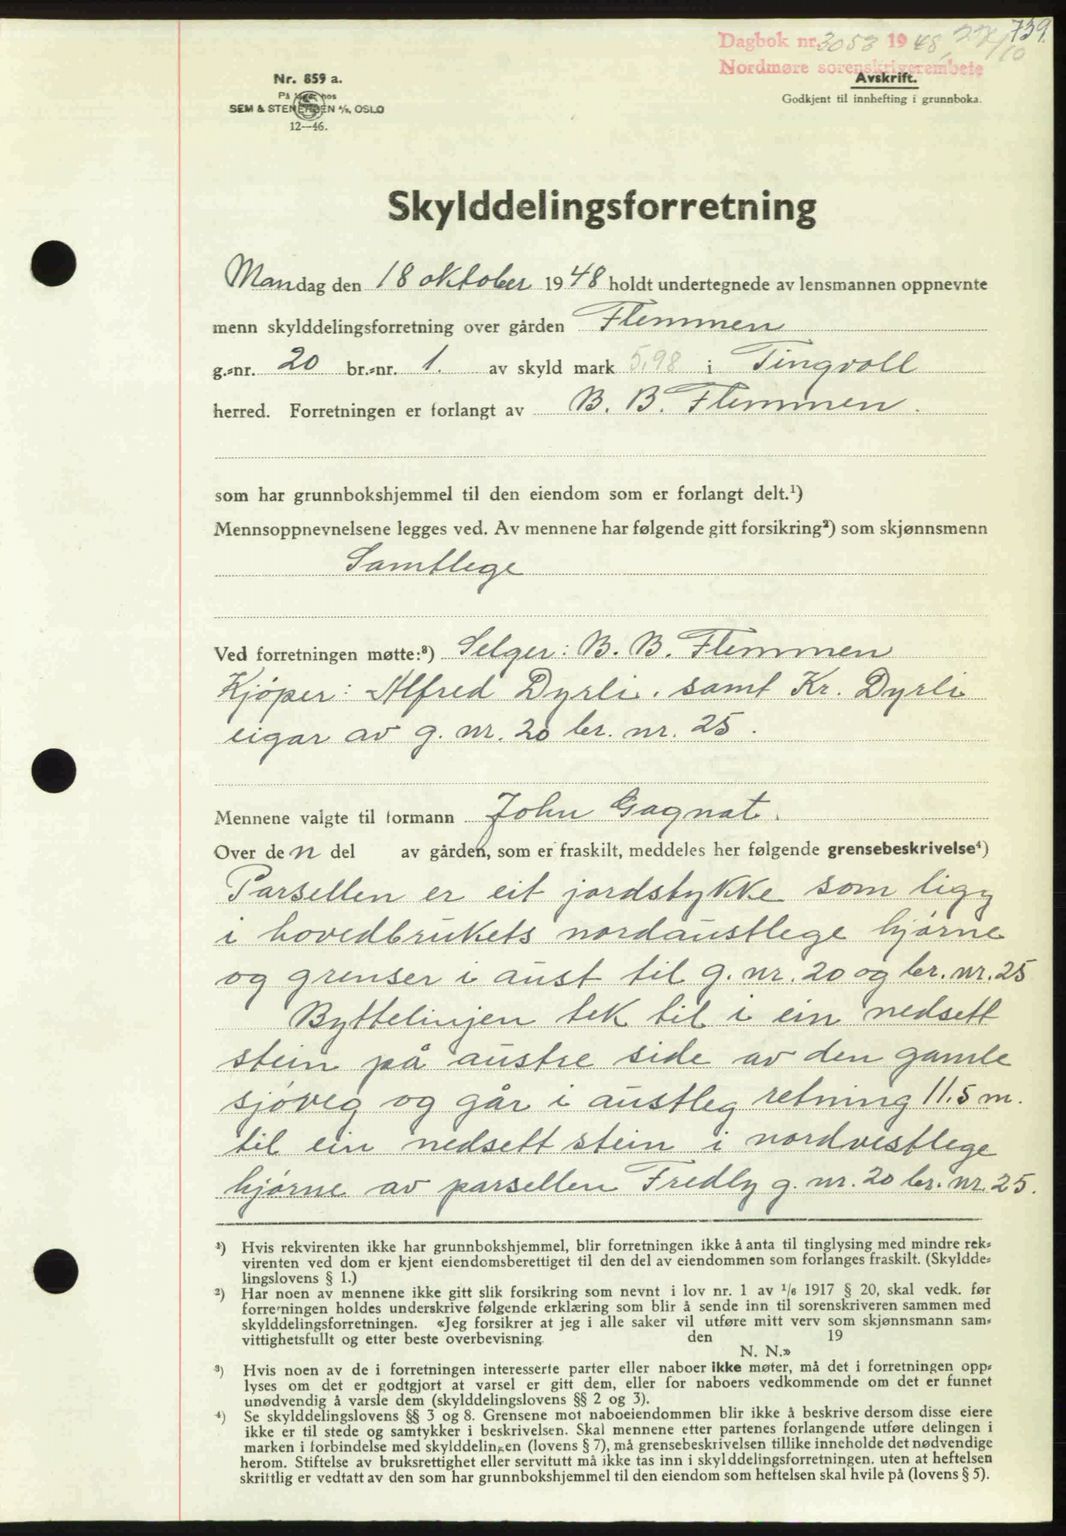 739.
Dagbok nr. 3053 1948, 22/10
Nordmøre sorenskriverembete
Nr. 859 a.
På lager hos
SEM & STENERSEN A/S, OSLO
12—46.
Avskrift.
Godkjent til innhefting i grunnboka.
Skylddelingsforretning
Mandag den 18 oktober 1948 holdt undertegnede av lensmannen oppnevnte
menn skylddelingsforretning over gården Flemmen
g.-nr. 20 br.-nr. 1. av skyld mark 5,98 i Tingvoll
herred. Forretningen er forlangt av B. B. Flemmen.
som har grunnbokshjemmel til den eiendom som er forlangt delt.¹)
Mennsoppnevnelsene legges ved. Av mennene har følgende gitt forsikring²) som skjønnsmenn
Samtlege
Ved forretningen møtte:³) Selger: B. B. Flemmen
Kjøper: Alfred Dyrli. samt Kr. Dyrli
eigar av g. nr. 20 br. nr. 25.
Mennene valgte til formann John Gagnat.
Over den del av gården, som er fraskilt, meddeles her følgende grensebeskrivelse⁴)
Parsellen er eit jordstykke som ligg
i hovedbrukets nordaustlege hjørne
og grenser i aust til g. nr. 20 og br. nr. 25
Byttelinjen tek til i ein nedsett
stein på austre side av den gamle
sjøveg og går i austleg retning 11.5 m.
til ein nedsett stein i nordvestlege
hjørne av parsellen Fredly g. nr. 20 br. nr. 25.
¹) Hvis rekvirenten ikke har grunnbokshjemmel, blir forretningen ikke å anta til tinglysing med mindre rek-
virenten ved dom er kjent eiendomsberettiget til den del av eiendommen som forlanges fraskilt. (Skyldde-
lingslovens § 1.)
²) Har noen av mennene ikke gitt slik forsikring som nevnt i lov nr. 1 av 1/6 1917 § 20, skal vedk. før
forretningen holdes underskrive følgende erklæring som blir å sende inn til sorenskriveren sammen med
skylddelingsforretningen. «Jeg forsikrer at jeg i alle saker vil utføre mitt verv som skjønnsmann sam-
vittighetsfullt og etter beste overbevisning. den 19
N. N.»
³) Hvis noen av de i forretningen interesserte parter eller naboer ikke møter, må det i forretningen opp-
lyses om det er godtgjort at varsel er gitt dem, eller for naboers vedkommende om det er funnet
unødvendig å varsle dem (skylddelingslovens §§ 2 og 3).
⁴) Se skylddelingslovens §§ 3 og 8. Grensene mot naboeiendommen blir ikke å beskrive dersom disse eiere
ikke er til stede og samtykker i beskrivelsen. Skal mennene etter partenes forlangende utføre delingen i
marken i forbindelse med skylddelingen (lovens § 7), må grensebeskrivelsen tillike inneholde det nødvendige
herom. Stiftelse av bruksrettighet eller servitutt må ikke tas inn i skylddelingsforretningen, uten at heftelsen
skriftlig er vedtatt av den som har grunnbokshjemmel til den eiendom som heftelsen skal hvile på (lovens § 5).